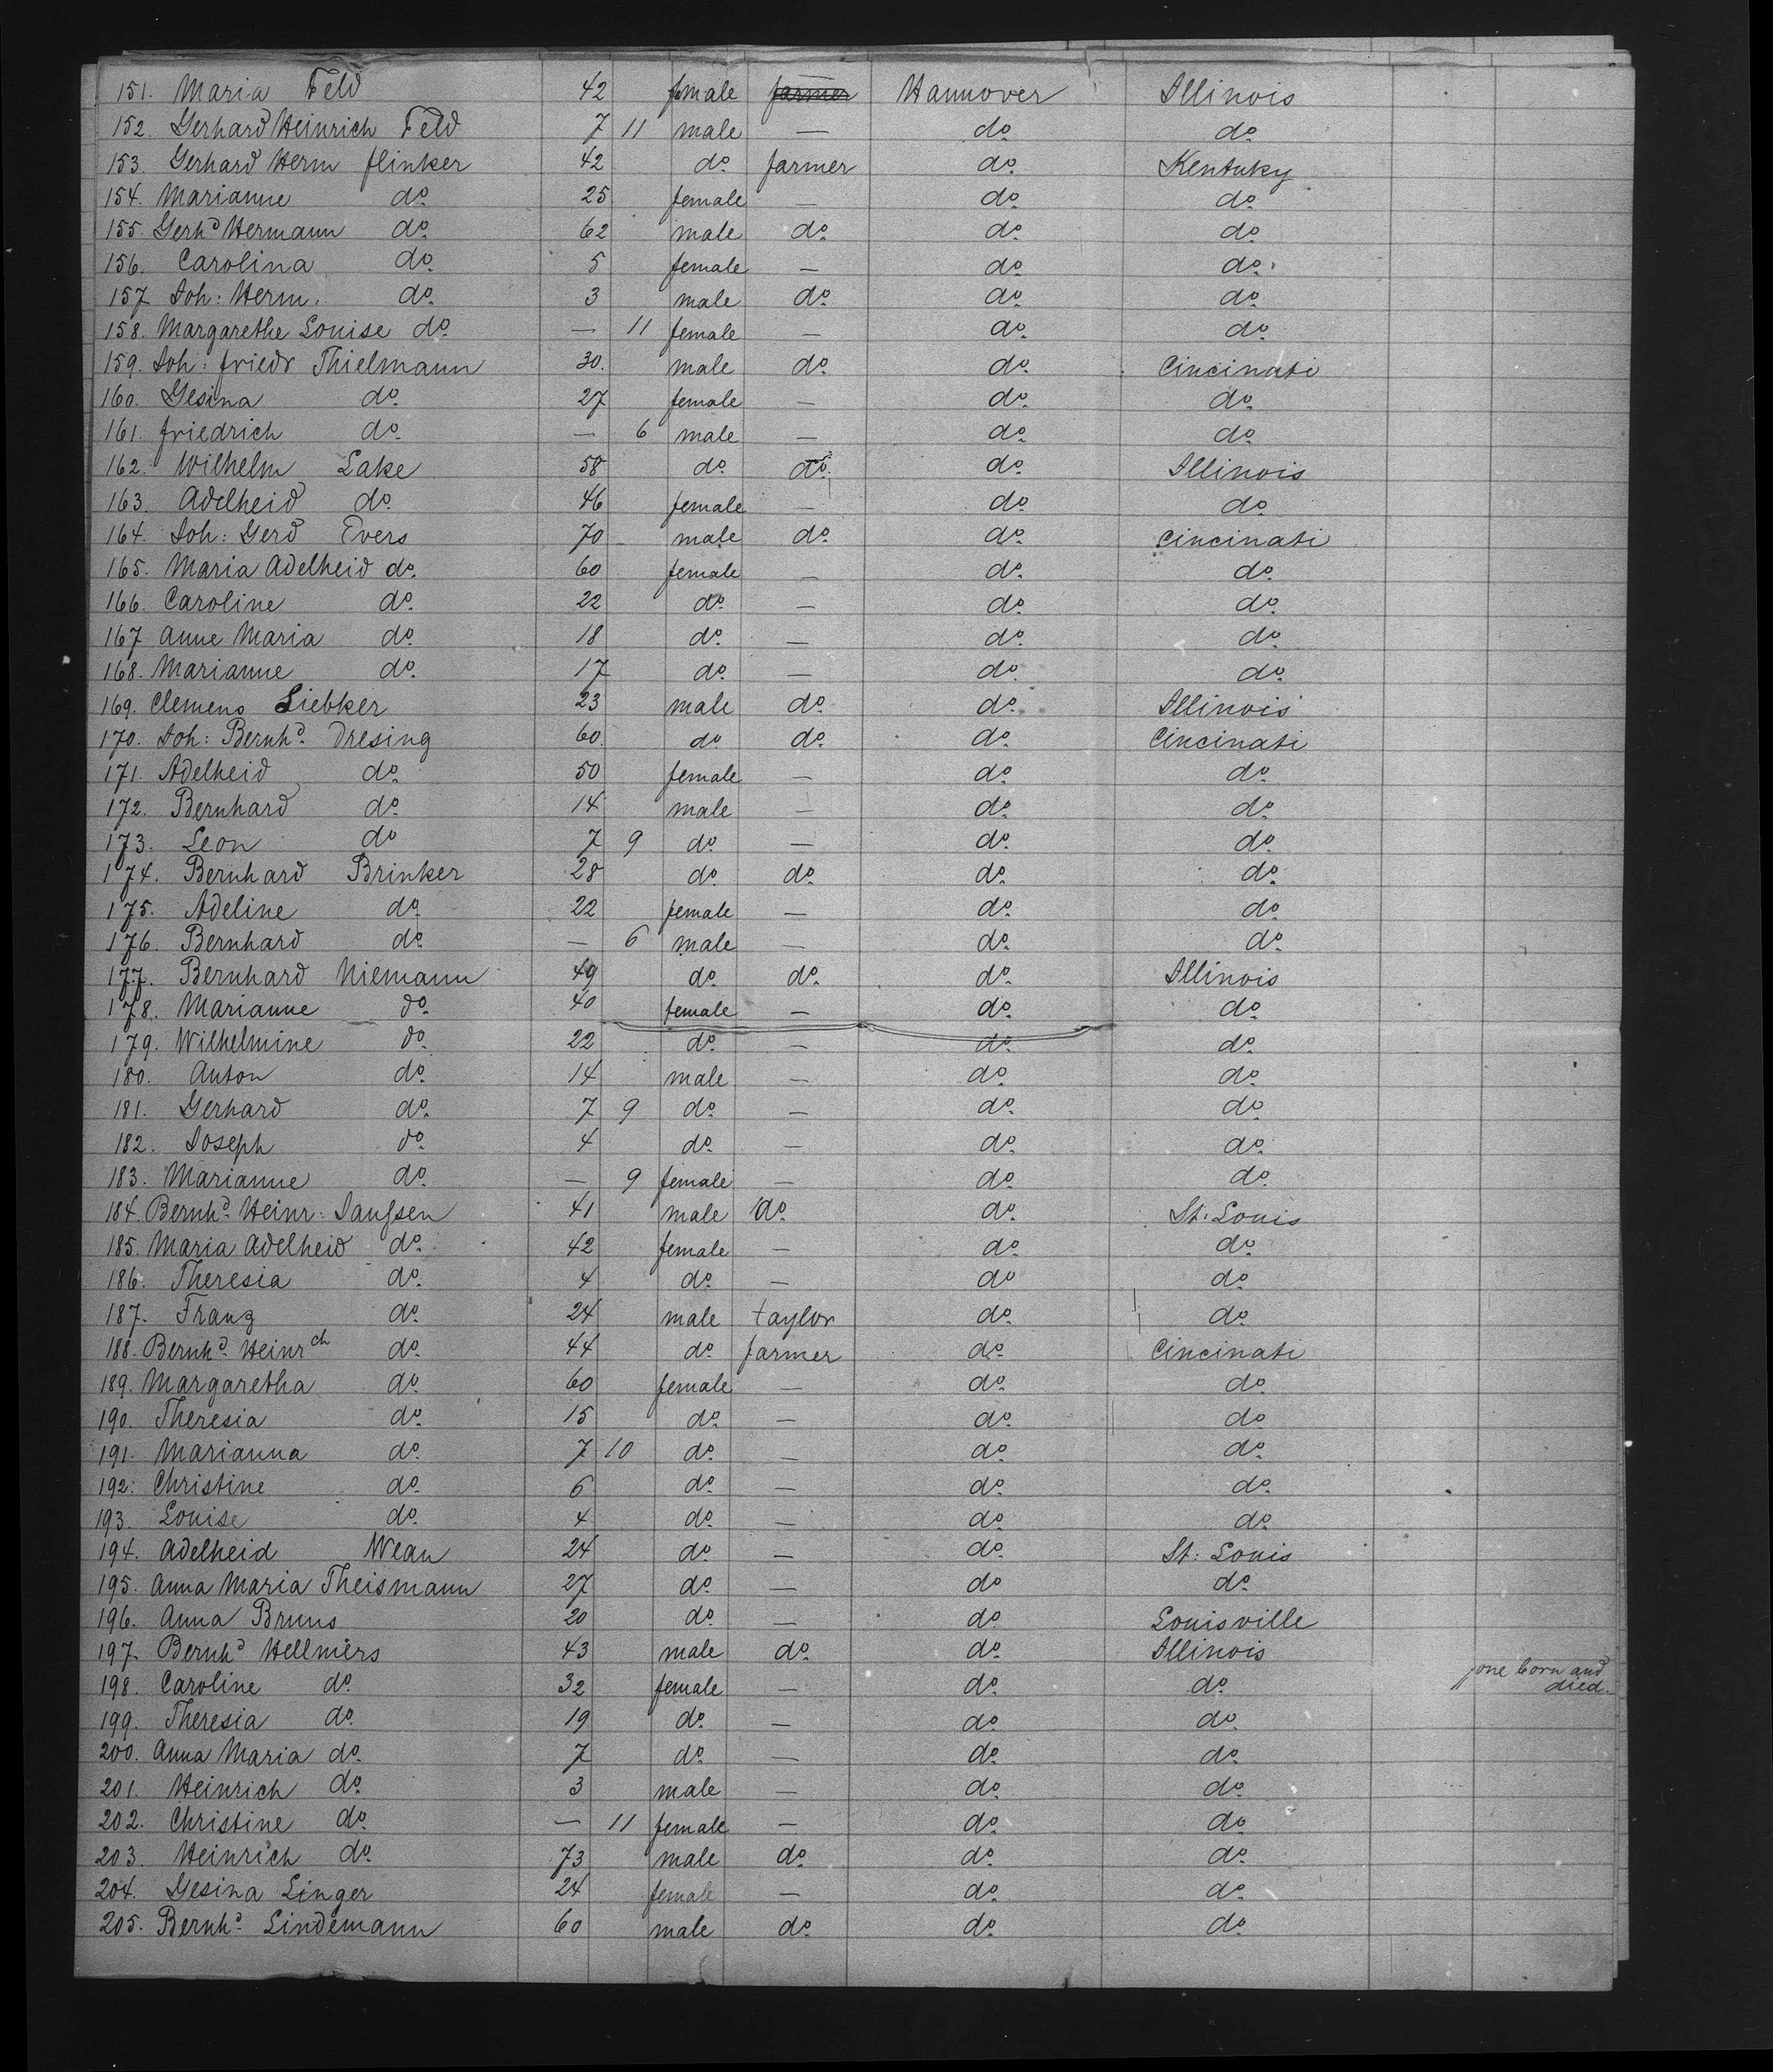 151. Maria Feld 42 female farmer Hannover Illinois
152. Gerhard Heinrich Feld 7 11 male — do do
153. Gerhard Herm flinker 42 do farmer do Kentuky
154. Marianne do 25 female — do do
155. Gerhd Hermann do 62 male do do do
156. Carolina do 5 female — do do
157 Joh: Herm. do 3 male do do do
158. Margarethe Louise do — 11 female — do do
159. Joh: friedr Thielmann 30. male do do Cincinati
160. Gesina do 27 female — do do
161. friedrich do — 6 male — do do
162. Wilhelm Lake 58 do do do Illinois
163 Adelheid do 46 female — do do
164. Joh: Gerd Evers 70 male do do Cincinati
165. Maria Adelheid do. 60 female — do do
166. Caroline do 22 do — do do
167 Anne Maria do 18 do — do do
168. Marianne do 17 do — do do
169. Clemens Liebker 23 male do do Illinois
170. Joh: Bernhd Dresing 60 do do do Cincinati
171. Adelheid do 50 female — do do
172. Bernhard do 14 male — do do
173. Leon do 7 9 do — do do
174. Bernhard Brinker 28 do do do do
175. Adeline do 22 female — do do
176. Bernhard do — 6 male — do do
177. Bernhard Niemann 49 do do do Illinois
178. Marianne do 40 female — do do
179. Wilhelmine do 22 do — do do
180. Anton do 14 male — do do
181. Gerhard do 7 9 do — do do
182. Joseph do 4 do — do do
183. Marianne do — 9 female — do do
184. Bernhd Heinr: Janssen 41 male do do St: Louis
185. Maria Adelheid do 42 female — do do
186. Theresia do 4 do — do do
187. Franz do 24 male taylor do do
188. Bernhd Heinrch do 44 do farmer do Cincinati
189. Margaretha do 60 female — do do
190. Theresia do 15 do — do do
191. Marianna do 7 10 do — do do
192: Christine do 6 do — do do
193. Louise do 4 do — do do
194. Adelheid Wean 24 do — do St: Louis
195. Anna Maria Theismann 27 do — do do
196. Anna Bruns 20 do — do Louisville
197. Bernhd Hellmers 43 male do do Illinois
198. Caroline do 32 female — do do one born and died.
199. Theresia do 19 do — do do
200. Anna Maria do 7 do — do do
201. Heinrich do 3 male — do do
202. Christine do — 11 female — do do
203. Heinrich do 73 male do do do
204. Gesina Linger 24 female — do do
205. Bernhd Lindemann 60 male do do do